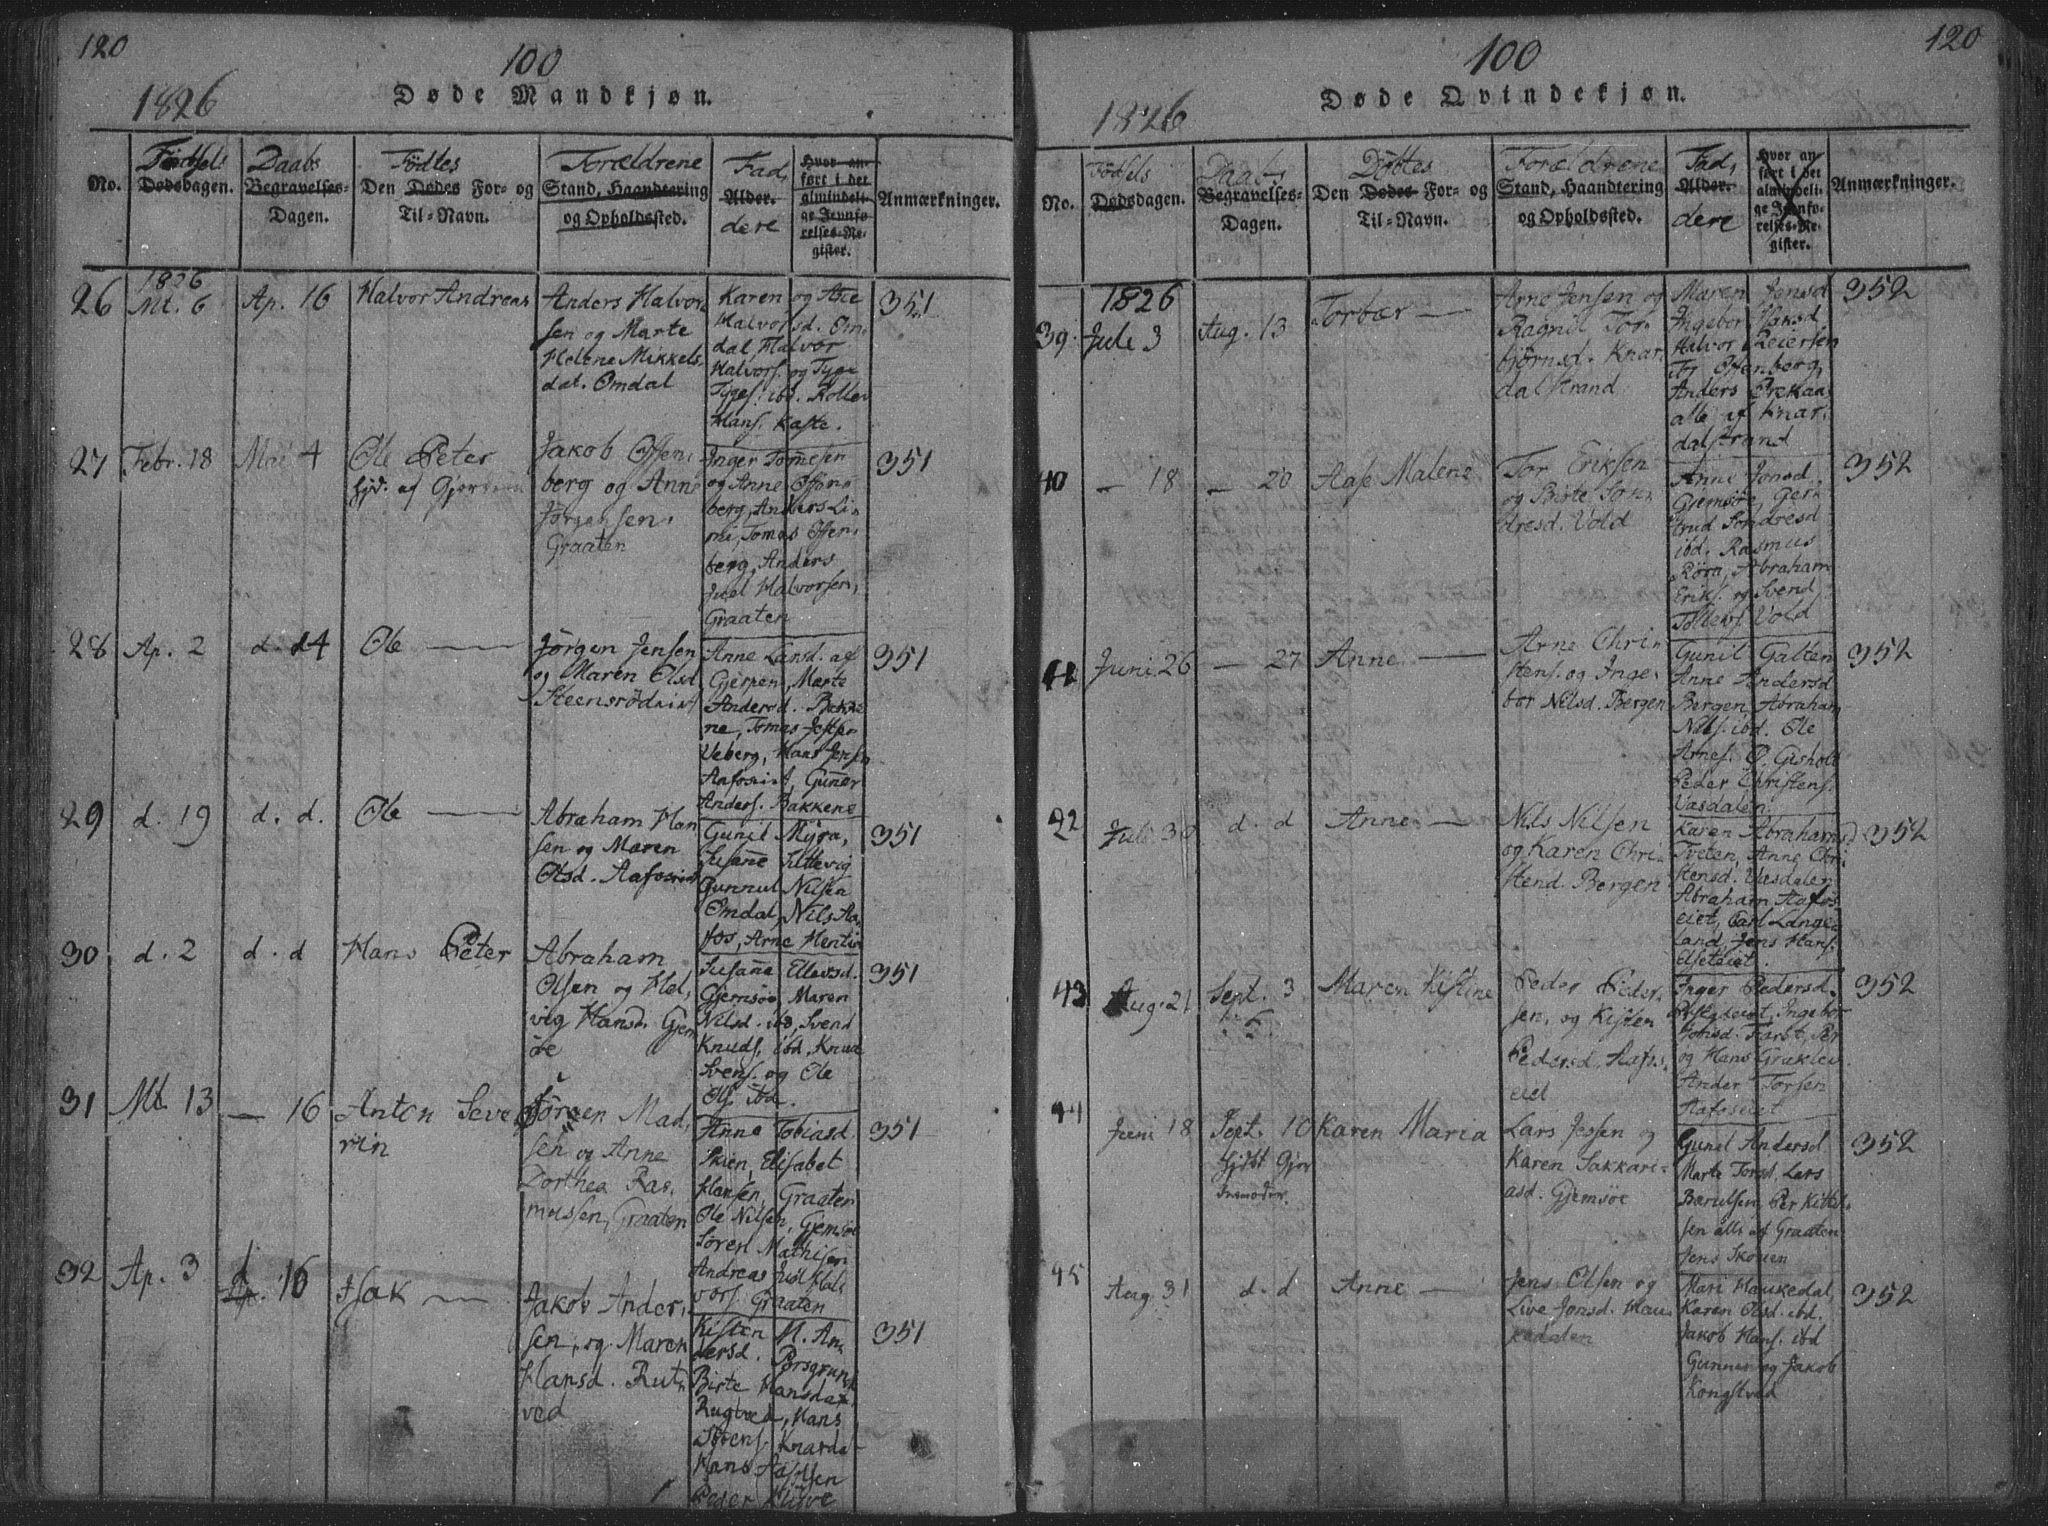 120
100
1826
Døde Mandkjøn.
No.
Fødsels
Dødsdagen.
Daabs
Begravelses-
Dagen.
Fødtes
Den Dødes For- og
Til-Navn.
Forældrene
Stand, Haandtering
og Opholdssted.
Fad,
Alder.
dere
Hvor an-
ført i det
almindeli-
ge Jevnfø-
relses-Re-
gister.
Anmærkninger.
26
1826
Mt. 6
Ap. 16
Halvor Andreas
Anders Halvor
sen og Marte
Helene Mikkels
dat. Omdal
Karen og Asse
Halvorsd. Om-
dal, Halvor
Halvors. og Tyge
Tyges. ibd. Koller
Hans. Kaste.
351
27
Febr. 18
Mai 4
Ole Peter
hjd. af
Jakob Offen,
berg og Anne
Jørgensen,
Graaten
Inger Tomesen
og Anne Offen-
berg, Anders Li-
mi, Tomas Offen-
berg, Anders
Juel Halvorsen,
Graaten
351
28
Ap. 2
d. d4
Ole
Jørgen Jensen
og Maren Olsd
Steensrød
Anne Larsd. af
Gjerpen, Marte
Andersd. Bakke
ne, Tomas
Veberg, Hans Jensen
Gunner
Anders. Bakkene
351
29
d. 19
d. d.
Ole
Abraham Han
sen og Maren
Olsd.
Gunil Myra,
Susanne Siltevig
Gunnul Nilsen
Omdal, Nils Aa-
fos, Arne
351
30
d. 2
d. d
Hans Peter
Abraham
Olsen og Hel,
vig Hansd. Gjem
søe
Susanne Ellevsd.
Gjemsøe, Maren
Nilsd. ibd, Svend
Knuds, ibd. Knud
Svens. og Ole
Ols. ibd.
351
31
Mt. 13
— 16
Anton Seve
rin
Jörgen Mad,
sen og Anne
Dorthea Ras,
mussen, Graaten
Anna Tobiasd.
Skien, Elisabet
Hansen, Graaten
Ole Nilsen, Gjemsøe
Søren Mathisen
Andreas Juel Hal
vors. Graaten
351
32
Ap. 3
d
Ap. 16
Isak
Jakob Ander,
sen, og Maren
Hansd. Rut,
ved
Kisten M. An
dersd. Porsgrund
Birte Hansdat.
Rugtved, Hans
Sørens. Knardal
Hans
Peder
351
100
120
1826
Døde Qvindekjøn.
No.
Fødsels
Dødsdagen.
Daabs
Begravelses-
Dagen.
Døbtes
Den Dødes For- og
Til-Navn.
Forældrene
Stand, Haandtering
og Opholdssted.
Fad,
Alder.
dere
Hvor an-
ført i det
almindeli-
ge Jevnfø-
relses-Re-
gister.
Anmærkninger.
39
1826
Juli 3
Aug. 13
Torbær
Arne Jensen og
Ragnil Tor-
bjørnsd. Knar,
dalstrand
Maren Jensd
Ingebor Hansd
Halvor Reiersen
Offenberg,
Anders
alle af Knar,
dalstrand
352
40
— 18
— 20
Aase Malene
Tor Eriksen
og Birte Son,
dresd. Vold
Anne Jonsd.
Gjemsøe, Ger
trud Sondresd
ibd. Rasmus
Røra, Abraham
Eriks. og Svend
Tollevs. Vold
352
41
Juni. 26
— 27
Anne
Arne Chri
stens. og Inge,
bor Nilsd. Bergen
Gunil Galten
Anne Andersd
Bergen Abraham
Nils. ibd. Ole
Arnes. O. Gisholt
Peder Christens.
Vasdalen
352
42
Juli 30
d. d
Anne
Nils Nilsen
og Karen Chri
stend. Bergen
Karen Abrahamsd
Tveten, Anne Chri
stensd. Vasdalen
Abraham Aafos
eiet, Carl Lange
land, Jens Hans.
352
43
Aug. 21
Sept. 3
Maren Kistine
Peder Peder,
sen, og Kisten
Pedersd. Aafos
eiet
Inger Pedersd.
Ingebor
Jonsd. Per
og Hans Graklev
Ander Torsen
Aafoseiet
352
44
Juni 18
Sept. 10
hjdbt Gjor
Karen Maria
Lars Jessen og
Karen Sakkari-
asd. Gjemsøe
Gunel Andersd
Marte Torsd, Lars
Barulsen, Per Kittel,
sen alle af Graaten
Jens Skouen
352
45
Aug. 31
d. d
Anne
Jens Olsen og
Live Jonsd. Hau
kedalen
Mari Haukedal,
Karen Olsd. ibd.
Jakob Hans. ibd
Gunner og Jakob
Kongstved
352